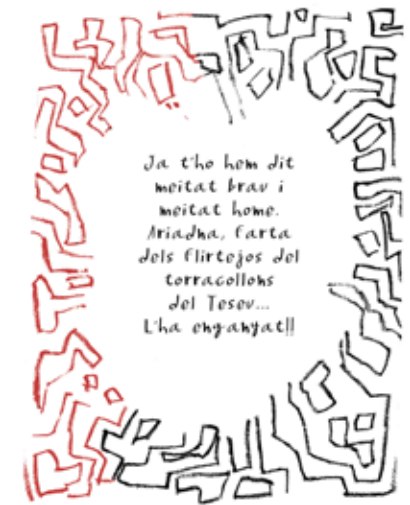 Ja t'ho hem dit
meitat brau i
meitat home.
Ariadna, farta
dels flirtejos del
torracollons
del Teseu...
L'ha enganyat!!